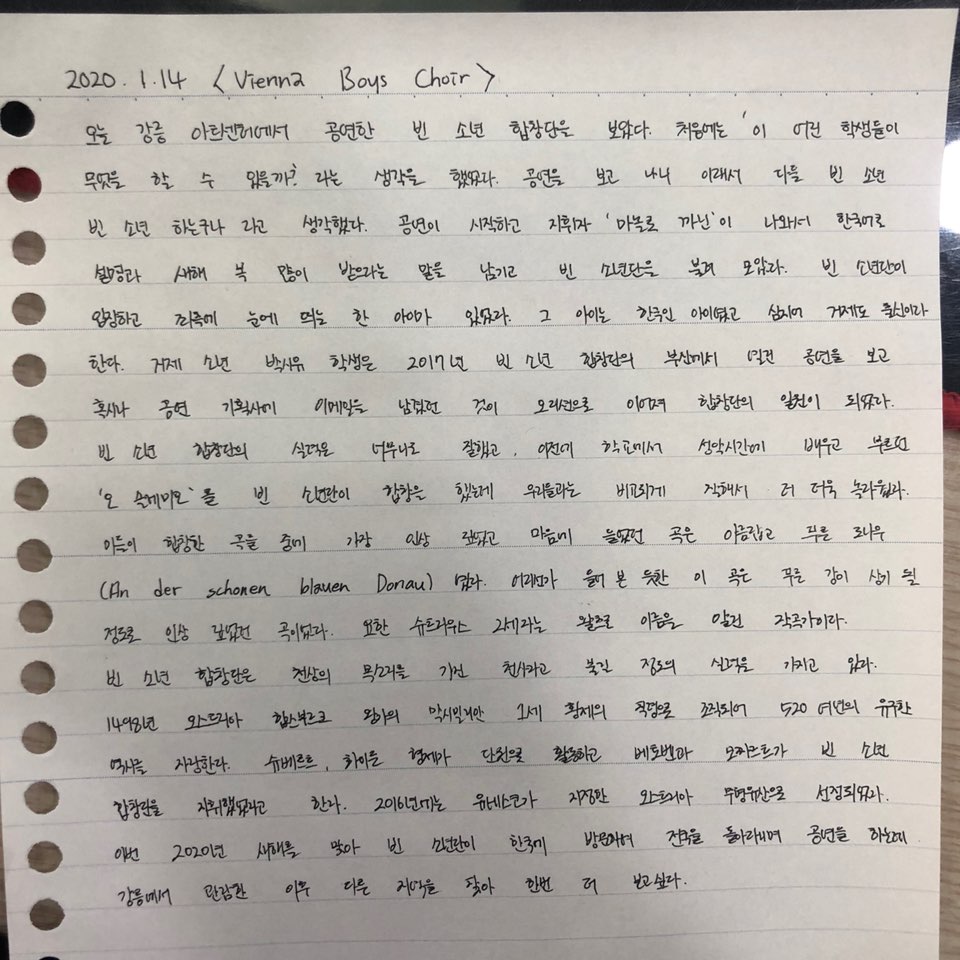 2020. 1. 14 <Vienna Boys Choir>
오늘 강릉 아트센터에서 공연한 빈 소년 합창단을 보았다. 처음에는 '이 어린 학생들이
무엇을 할 수 있을까?' 라는 생각을 했었다. 공연을 보고 나니 이래서 다들 빈 소년
빈 소년 하는구나 라고 생각했다. 공연이 시작하고 지휘자 '마놀로 까닌'이 나와서 한국어로
설명과 새해 복 많이 받으라는 말을 남기고 빈 소년단을 불러 모았다. 빈 소년단이
입장하고 최종에 눈에 띄는 한 아이가 있었다. 그 아이는 한국인 아이였고 심지어 거제도 출신이라
한다. 거제 소년 박시유 학생은 2017년 빈 소년 합창단의 부산에서 열린 공연을 보고
혹시나 공연 기획사에 이메일을 남겼던 것이 오디션으로 이어져 합창단의 일원이 되었다.
빈 소년 합창단의 실력은 너무나도 잘했고, 이전에 학교에서 성악시간에 배우고 부르던
'오 솔레미오'를 빈 소년단이 합창을 했는데 우리들과는 비교되게 잘해서 더 더욱 놀라웠다.
이들이 합창한 곡들 중에 가장 인상 깊었고 마음에 들었던 곡은 아름답고 푸른 도나우
(An der schonen blauen Donau) 였다. 어디선가 들어 본 듯한 이 곡은 푸른 강이 상기 될
정도로 인상 깊었던 곡이었다. 요한 슈트라우스 2세라는 왈츠로 이름을 알린 작곡가이다.
빈 소년 합창단은 천상의 목소리를 가진 천사라고 불린 정도의 실력을 가지고 있다.
1498년 오스트리아 합스부르크 왕가의 막시밀리안 1세 황제의 칙명으로 조직되어 520여년의 유구한
역사를 자랑한다. 슈베르트, 하이든 형제가 단원으로 활동하고 베토벤과 모차르트가 빈 소년
합창단을 지휘했었다고 한다. 2016년에는 유네스코가 지정한 오스트리아 무형유산으로 선정되었다.
이번 2020년 새해를 맞아 빈 소년단이 한국에 방문하여 전국을 돌아다니며 공연을 하는데
강릉에서 관람한 이후 다른 지역을 찾아 한번 더 보고싶다.